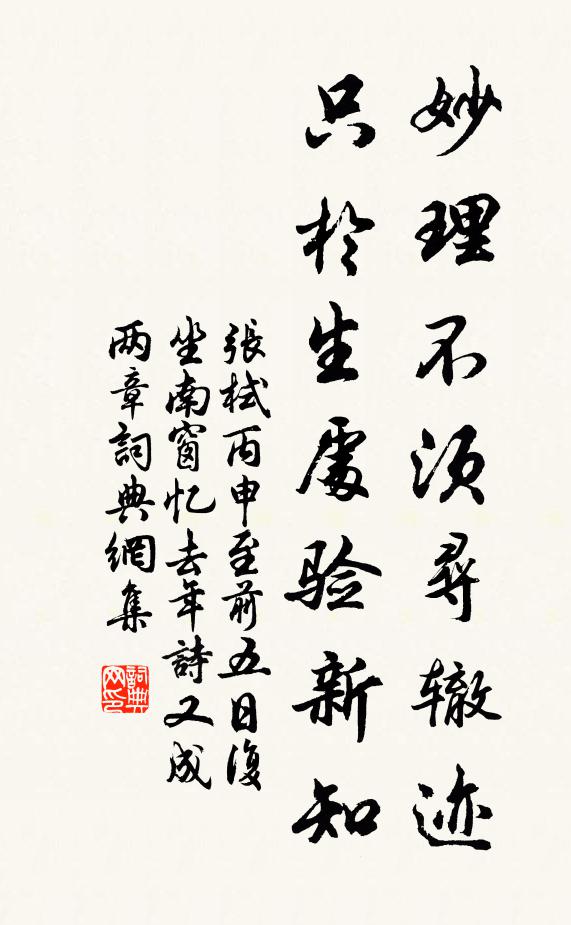 妙理不须尋辙迹
只於生處验新知
張栻丙申至前五日復
坐南窗忆去年詩又成
两章詞典網集
詞典网印